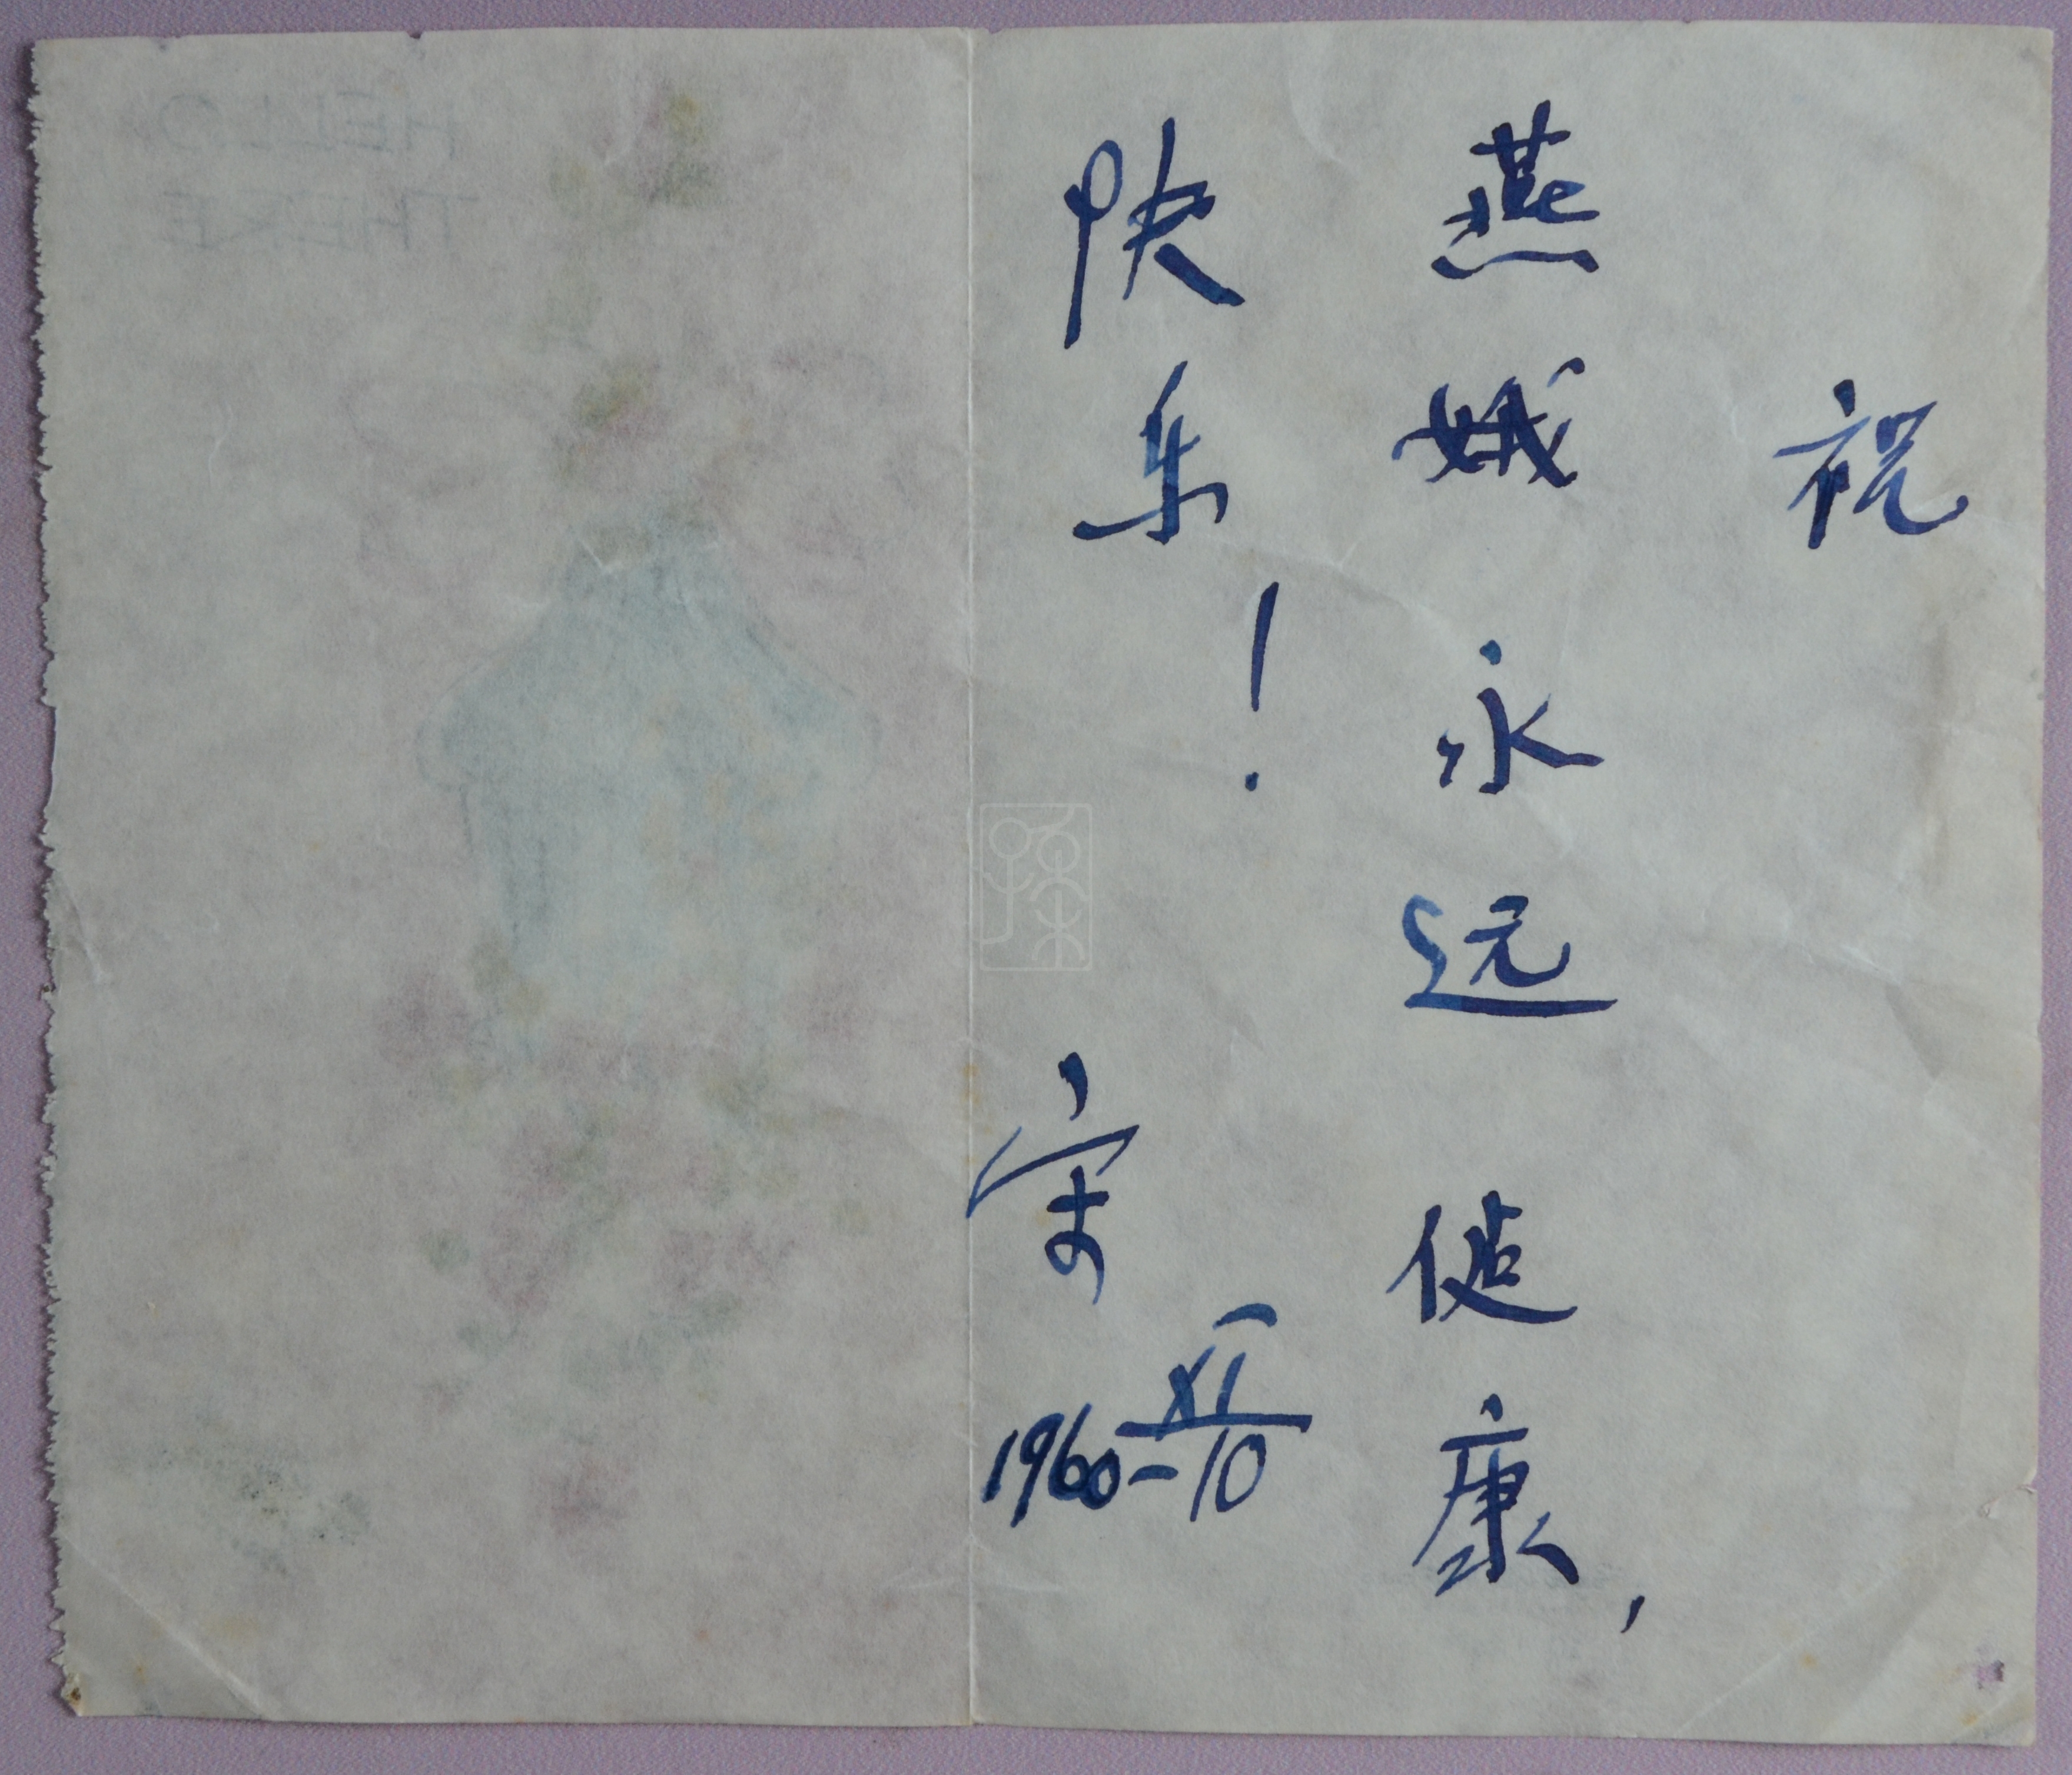 祝
燕娥永远健康,
快乐!
宋
1960-XI/10
HELLO
THERE